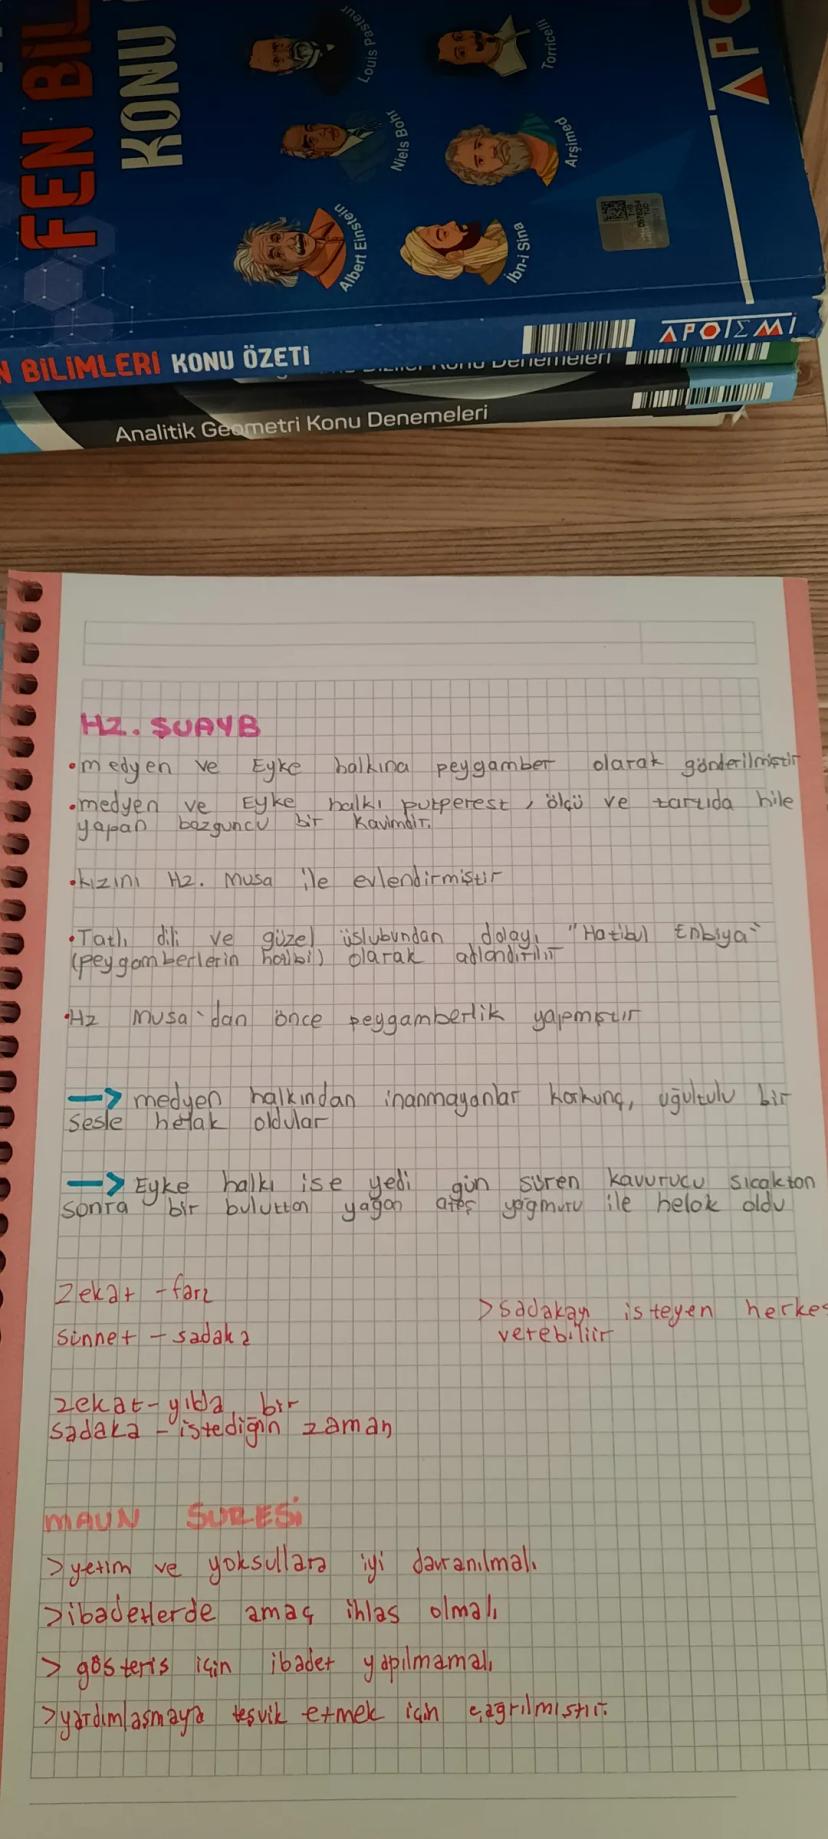 FEN BİL
KONU
Louis Pasteur
Torricelli
Niels Bohr
Arşimed
Albert Einstein
İbn-i Sina
APO
N BİLİMLERİ KONU ÖZETİ
APOTEMİ
Konu Denemeleri
Analitik Geometri Konu Denemeleri
HZ. ŞUAYB
•medyen ve Eyke halkına peygamber olarak gönderilmiştir
•medyen ve Eyke halkı putperest, ölçü ve tartıda hile
yapan bozguncu bir kavimdir.
•kızını Hz. Musa ile evlendirmiştir
•Tatlı dili ve güzel üslubundan dolayı "Hatibul Enbiya"
(peygamberlerin hatibi) olarak adlandırılır
•Hz Musa'dan önce peygamberlik yapmıştır
→ medyen halkından inanmayanlar korkunç, uğultulu bir
sesle helak oldular
→ Eyke halkı ise yedi gün süren kavurucu sıcaktan
sonra bir buluttan yağan ateş yağmuru ile helak oldu
zekat - farz
>sadakayı isteyen herkes
sünnet - sadaka
verebilir
zekat- yılda bir
sadaka - istediğin zaman
MAUN SURESİ
>yetim ve yoksullara iyi davranılmalı
>ibadetlerde amaç ihlas olmalı
> gösteris için ibadet yapılmamalı
>yardımlaşmaya teşvik etmek için çağrılmıştır.